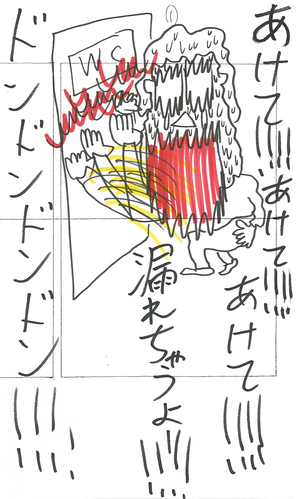 あけて!!!!あけて!!!!!
あけて!!!!!
漏れちゃうよ!!!!!
WC
ドンドンドンドンドン!!!!